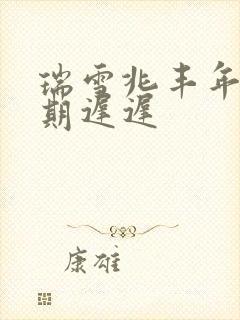 瑞雪兆丰年
期遲遲
康雄